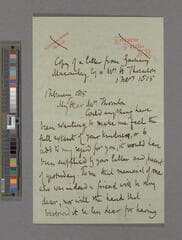 Copy of a letter from Zachary
Macaulay Esq to Mrs H Thornton
1 Feby 1815
1 February 1815
My dear Mrs Thornton
Could anything have
been wanting to make me feel the
full extent of your kindness, or to
add to my regard for you, it would have
been supplied by your letter and present
of yesterday. To me this memorial of one
who was indeed a friend will be very
dear, nor will the hands that
bestowed it be less dear for having